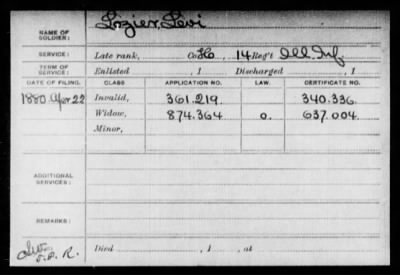 NAME OF SOLDIER: Lozier, Levi
SERVICE: Late rank, Co. 14 Reg't Ill Inf
TERM OF SERVICE: Enlisted , 1 Discharged , 1
DATE OF FILING. CLASS APPLICATION NO. LAW. CERTIFICATE NO.
1880 Apr 22 Invalid, 361.219. 340.336.
Widow, 874.364 0. 637.004.
Minor,
ADDITIONAL SERVICES:
REMARKS:
Died , 1 , at
R.